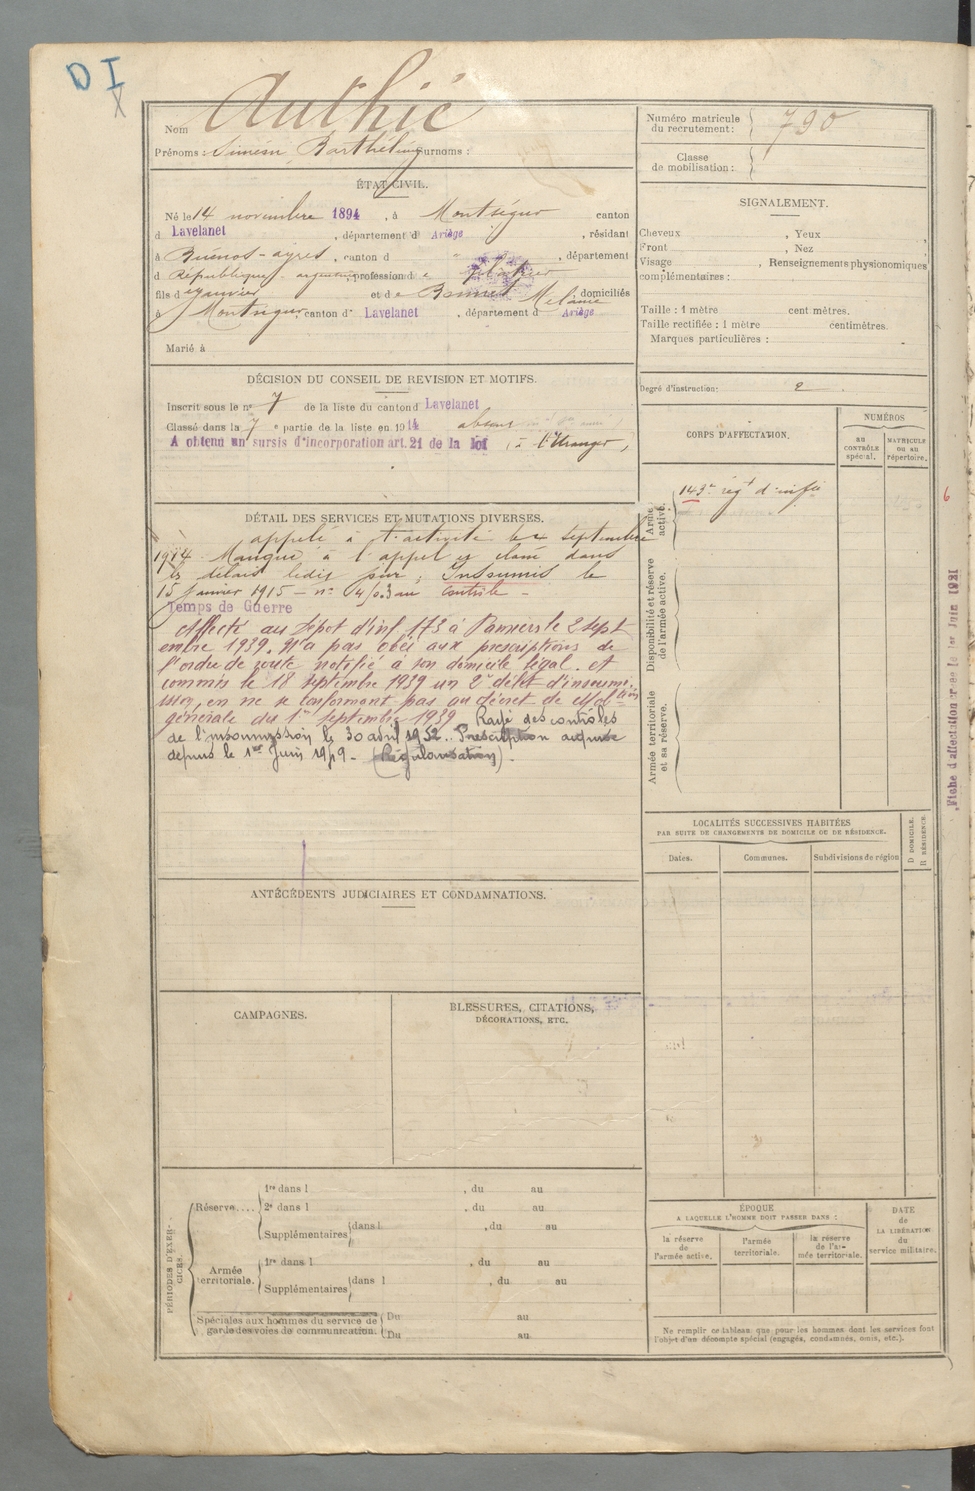 D I
X
Nom Authié
Prénoms : Siméon Barthélemy Surnoms :
Numéro matricule du recrutement : 790
Classe de mobilisation :
ÉTAT CIVIL.
Né le 14 novembre 1894, à Montségur canton
d Lavelanet, département d Ariège, résidant
à Buenos-ayres, canton d " , département
d République argentine, profession d e
fils d et de Bonnet Mélanie, domiciliés
à Montségur, canton d Lavelanet, département d Ariège
Marié à
SIGNALEMENT.
Cheveux , Yeux ,
Front , Nez
Visage , Renseignements physionomiques
complémentaires :
Taille : 1 mètre cent mètres.
Taille rectifiée : 1 mètre centimètres.
Marques particulières :
DÉCISION DU CONSEIL DE REVISION ET MOTIFS.
Inscrit sous le n° 7 de la liste du canton d Lavelanet
Classé dans la 7 e partie de la liste en 1914 absent
A obtenu un sursis d'incorporation art. 21 de la loi (à l'Etranger)
Degré d'instruction : 2
CORPS D'AFFECTATION.
NUMÉROS
au CONTRÔLE spécial.
MATRICULE ou au répertoire.
Armée active.
143e régt d'infie
Disponibilité et réserve de l'armée active.
Armée territoriale et sa réserve.
6
Fiche d'affectation créée le 1er Juin 1921
DÉTAIL DES SERVICES ET MUTATIONS DIVERSES.
appelé à l'activité le 4 septembre
1914. Manqué à l'appel et classé dans
les délais ledit jour; Insoumis le
15 janvier 1915 – n° contrôle –
Temps de Guerre
Affecté au Dépôt d'inf 173 à Pamiers le 2 sept
embre 1939. N'a pas obéi aux prescriptions de
l'ordre de route notifié à son domicile légal. et
commis le 18 septembre 1939 un 2e délit d'insoumis
sion, en ne se conformant pas au décret de mobiltion
générale du 1er septembre 1939 Rayé des contrôles
de l'insoumission le 30 avril 1952. Prescription acquise
depuis le 1er Juin 1949 - (Régularisation).
LOCALITÉS SUCCESSIVES HABITÉES
PAR SUITE DE CHANGEMENTS DE DOMICILE OU DE RÉSIDENCE.
D DOMICILE.
R RÉSIDENCE.
Dates. Communes. Subdivisions de région
ANTÉCÉDENTS JUDICIAIRES ET CONDAMNATIONS.
CAMPAGNES.
BLESSURES, CITATIONS,
DÉCORATIONS, ETC.
PÉRIODES D'EXERCICES.
Réserve....
1re dans l , du au
2e dans l , du au
Supplémentaires dans l , du au
Armée territoriale.
1re dans l , du au
Supplémentaires dans l , du au
Spéciales aux hommes du service de Du au
garde des voies de communication. Du au
ÉPOQUE
A LAQUELLE L'HOMME DOIT PASSER DANS :
la réserve de l'armée active.
l'armée territoriale.
la réserve de l'armée territoriale.
DATE
de
LA LIBÉRATION
du
service militaire.
Ne remplir ce tableau que pour les hommes dont les services font
l'objet d'un décompte spécial (engagés, condamnés, omis, etc.).